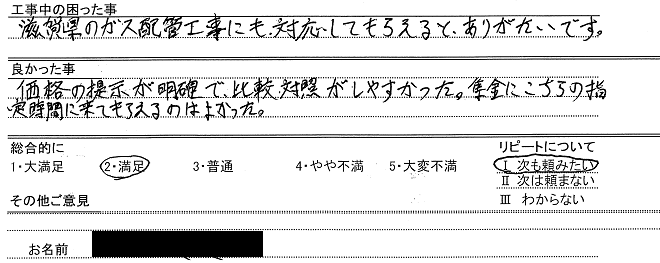 工事中の困った事
滋賀県のガス配管工事にも、対応してもらえると、ありがたいです。
良かった事
価格の提示が明確で、比較対照がしやすかった。集金にこちらの指
定時間に来てもらえるのはよかった。
総合的に
リピートについて
1・大満足 2・満足 3・普通 4・やや不満 5・大変不満
Ⅰ 次も頼みたい
Ⅱ 次は頼まない
その他ご意見
Ⅲ わからない
お名前